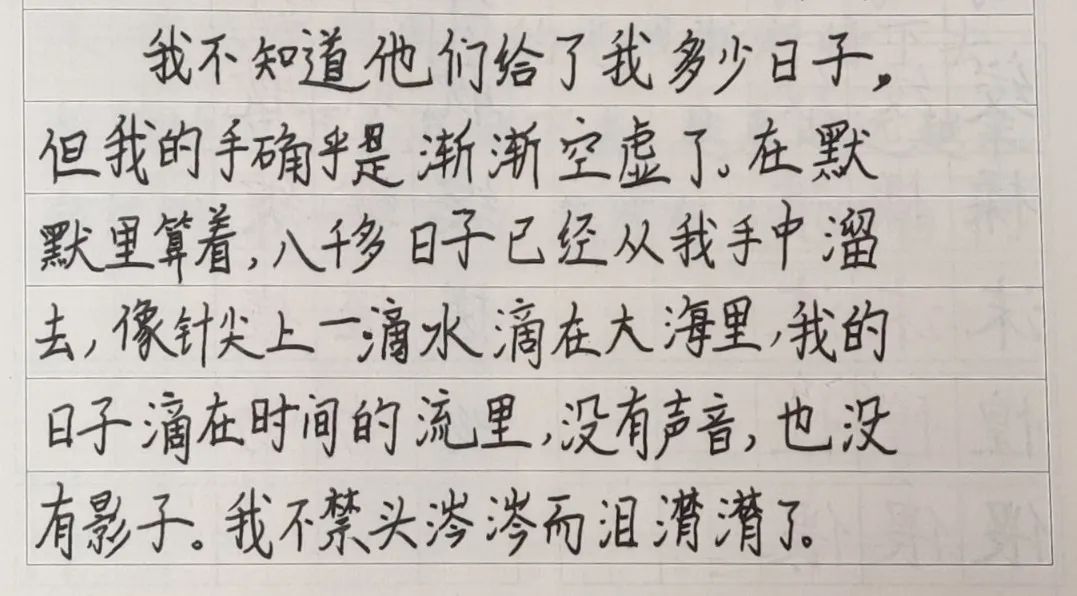 我不知道他们给了我多少日子，
但我的手确乎是渐渐空虚了。在默
默里算着，八千多日子已经从我手中溜
去，像针尖上一滴水滴在大海里，我的
日子滴在时间的流里，没有声音，也没
有影子。我不禁头涔涔而泪潸潸了。